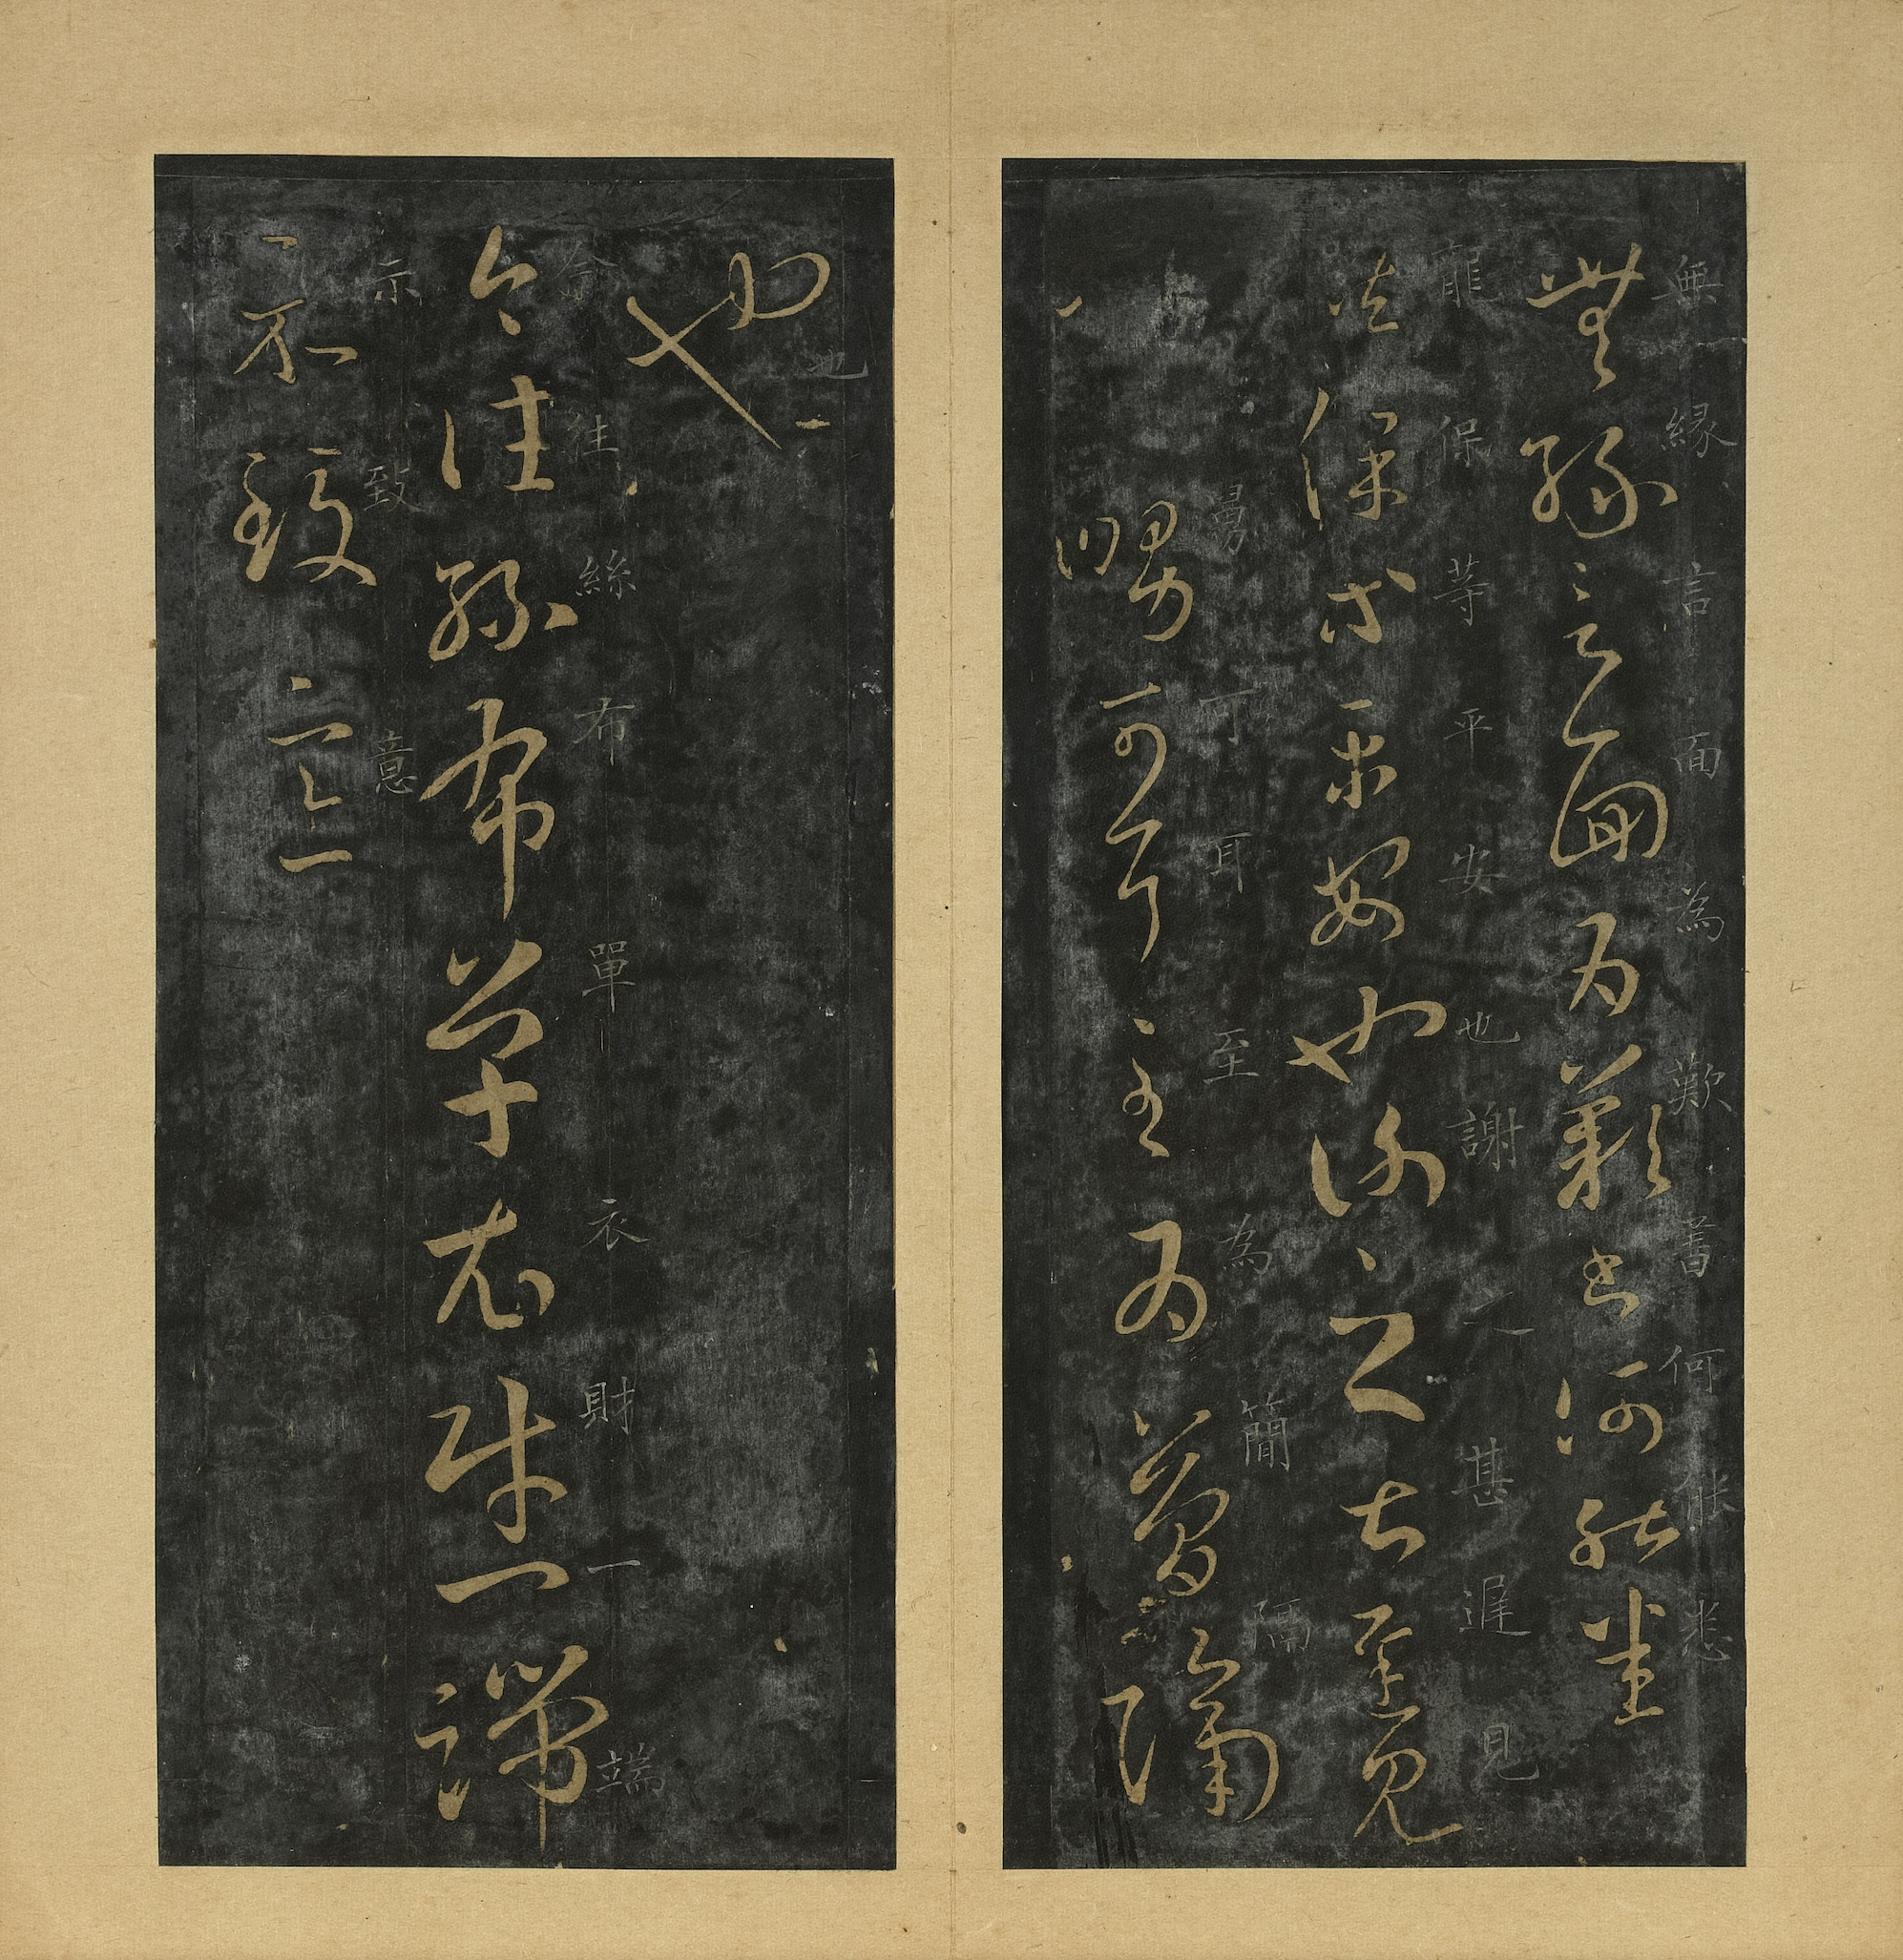 無縁言面為歎書何能悉
無緣言面為歎書何能悉
龍保等平安也謝之甚遲見
龍保等平安也謝之甚遲見
舅可耳至為簡隔
卿舅可耳至為簡隔
也
也
今往絲布單衣財一端
今往絲布單衣財一端
示致意
示致意